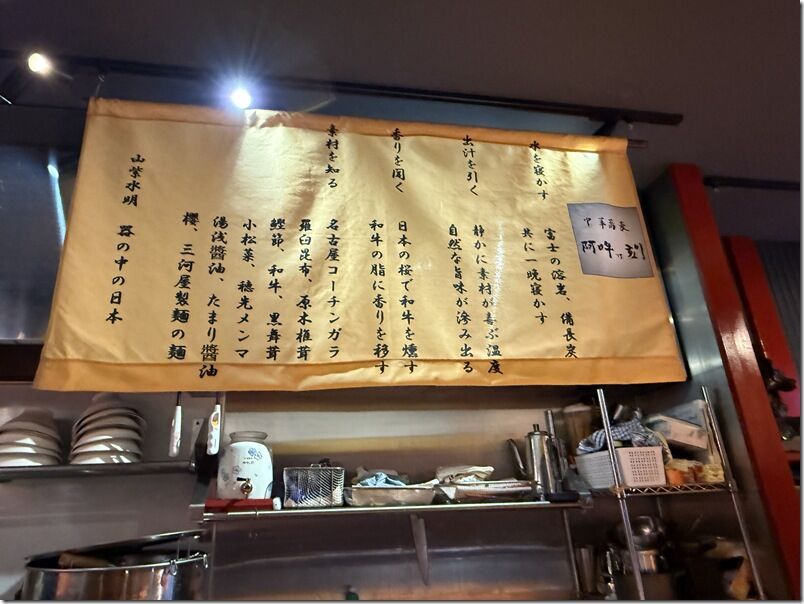 中華蕎麦
阿吽の刻
水を寝かす
富士の溶岩、備長炭
共に一晩寝かす
出汁を引く
静かに素材が喜ぶ温度
自然な旨味が滲み出る
香りを聞く
日本の桜で和牛を燻す
和牛の脂に香りを移す
素材を知る
名古屋コーチンガラ
羅臼昆布、原木椎茸
鰹節、和牛、黒舞茸
小松菜、穂先メンマ
湯浅醬油、たまり醬油
櫻、三河屋製麺の麺
山紫水明 器の中の日本